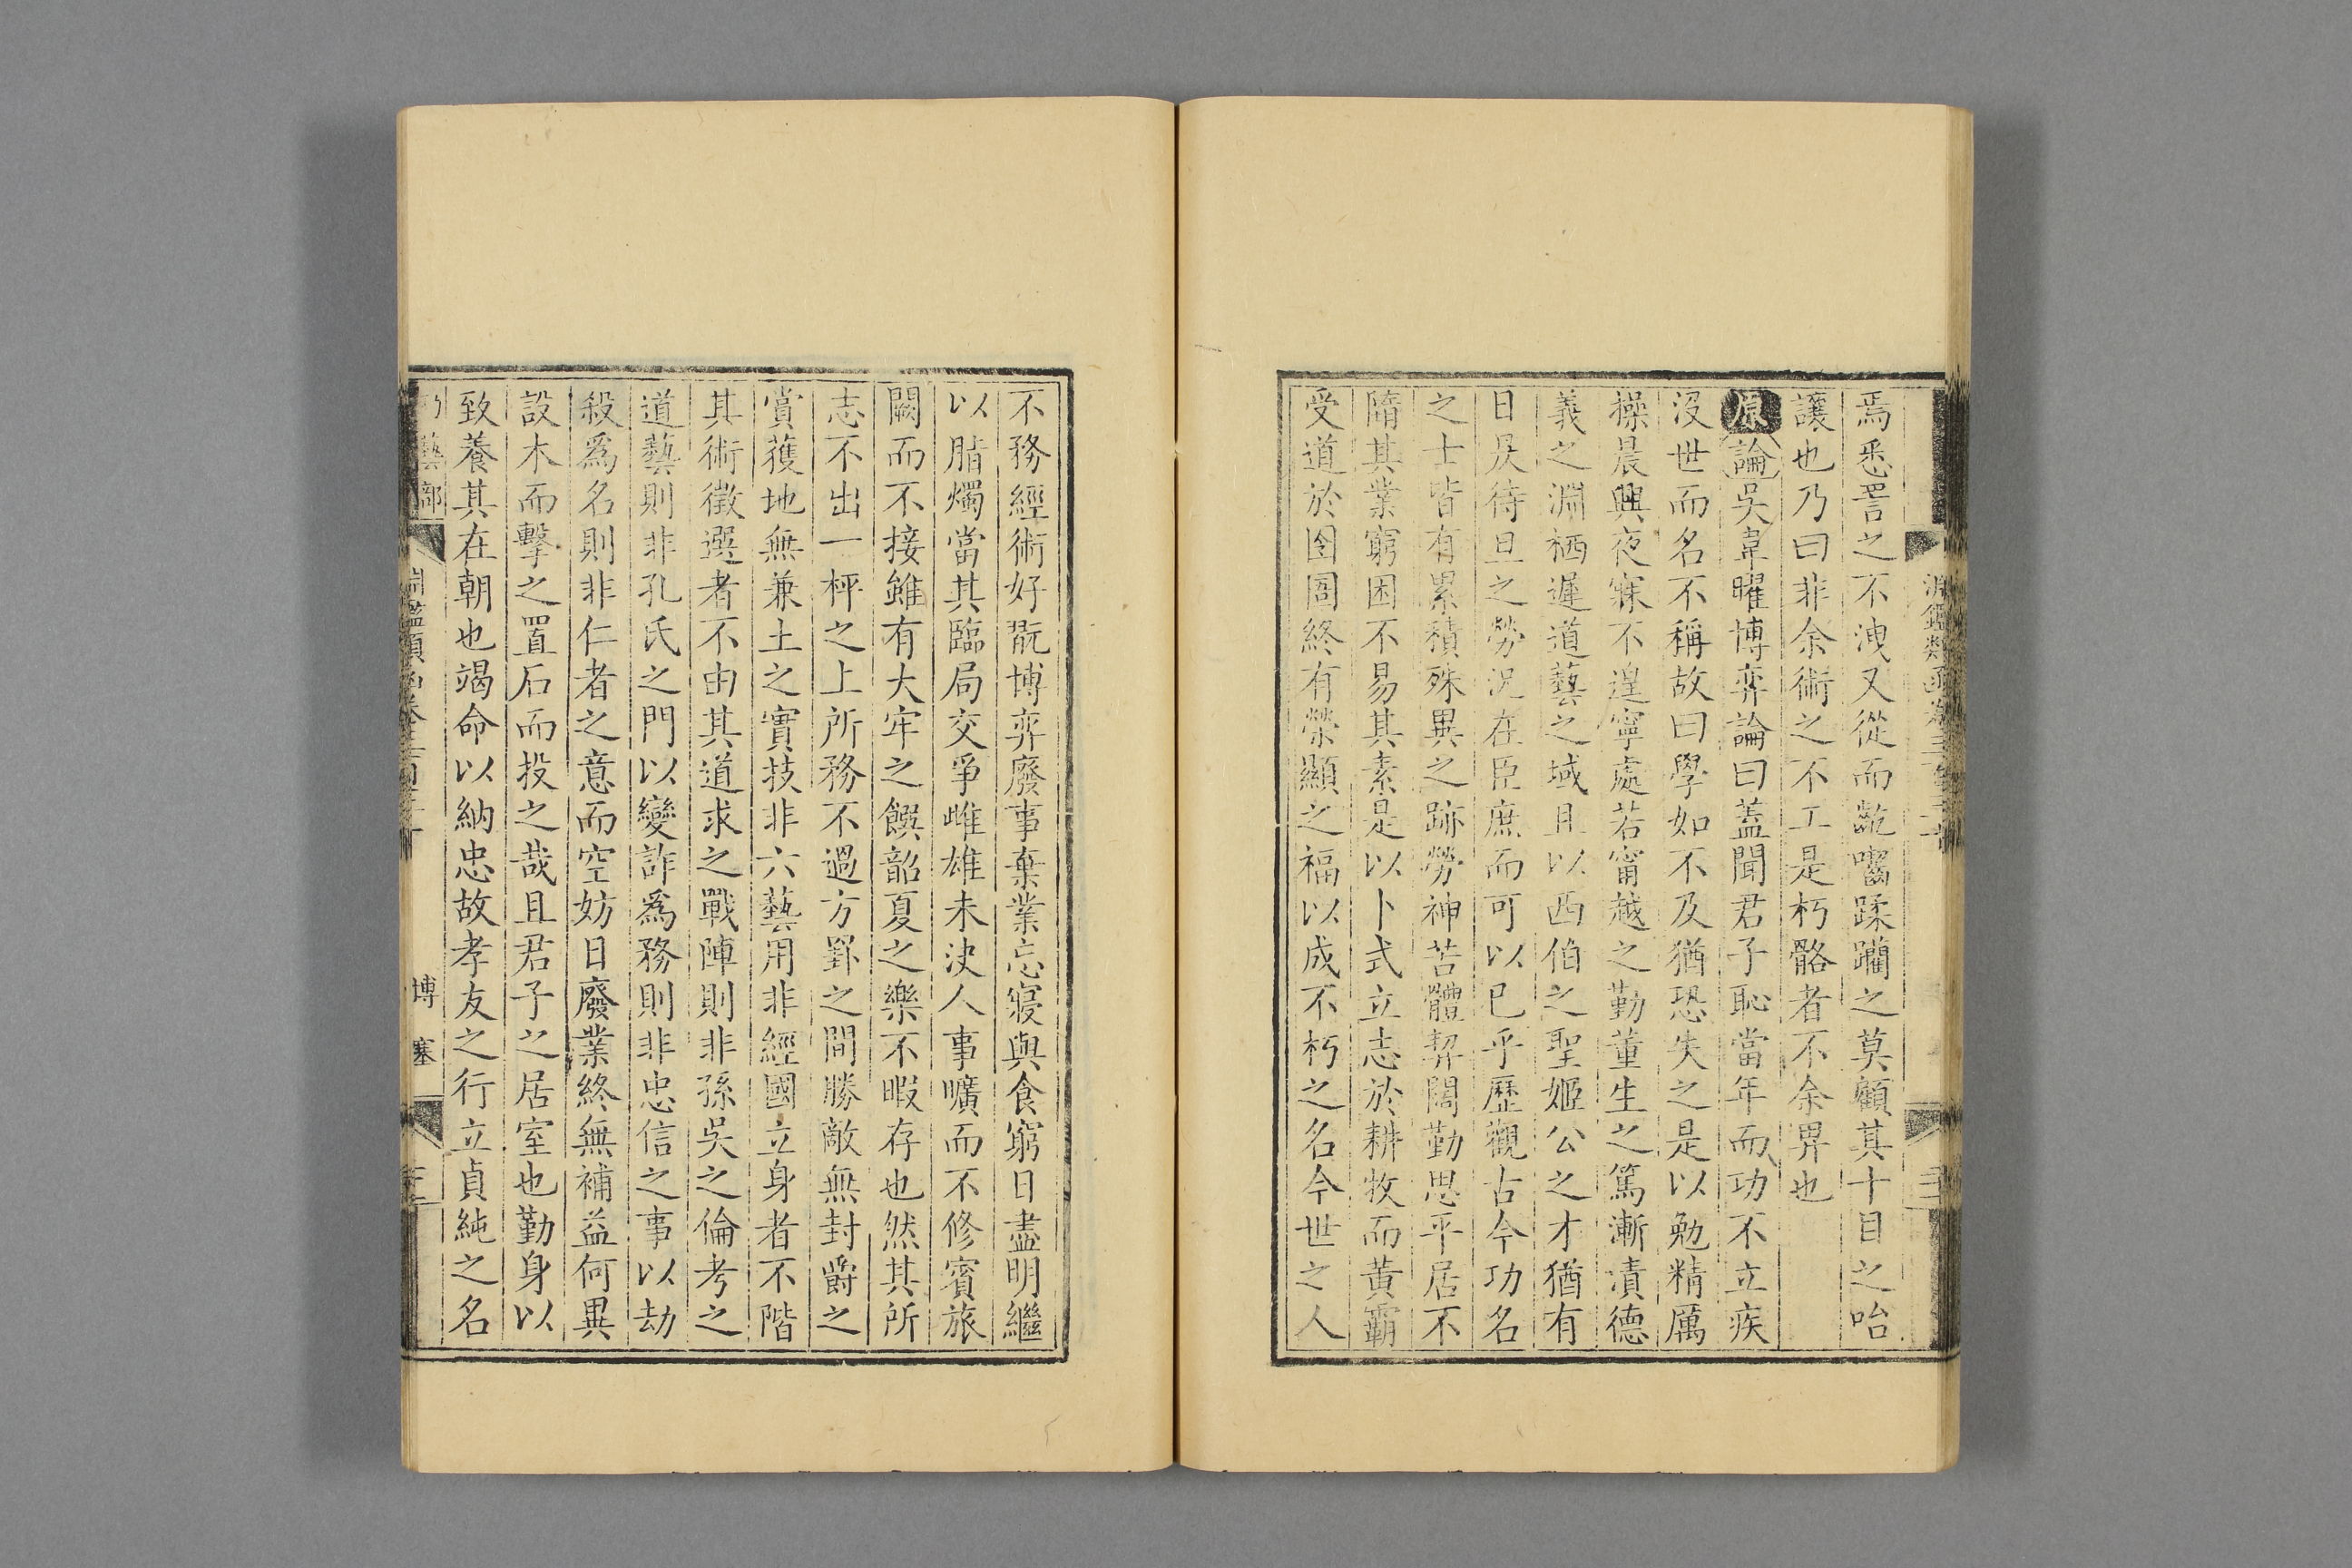 焉悉詈之不洩又從而齕囓蹂躪之莫顧其十目之咍
讓也乃曰非余術之不工是朽骼者不余畀也
原論吳韋曜博弈論曰蓋聞君子恥當年而功不立疾
沒世而名不稱故曰學如不及猶恐失之是以勉精厲
操晨興夜寐不遑寧處若甯越之勤董生之篤漸漬德
義之淵栖遲道藝之域且以西伯之聖姬公之才猶有
日昃待旦之勞況在臣庶而可以已乎歷觀古今功名
之士皆有累積殊異之跡勞神苦體契闊勤思平居不
隋其業窮困不易其素是以卜式立志於耕牧而黃霸
受道於囹圄終有榮顯之福以成不朽之名今世之人
不務經術好翫博弈廢事棄業忘寢與食窮日盡明繼
以脂燭當其臨局交爭雌雄未決人事曠而不修賓旅
闕而不接雖有大牢之饌韶夏之樂不暇存也然其所
志不出一枰之上所務不過方罫之間勝敵無封爵之
賞獲地無兼土之實技非六藝用非經國立身者不階
其術徵選者不由其道求之戰陣則非孫吳之倫考之
道藝則非孔氏之門以變詐爲務則非忠信之事以劫
殺爲名則非仁者之意而空妨日廢業終無補益何異
設木而擊之置石而投之哉且君子之居室也勤身以
致養其在朝也竭命以納忠故孝友之行立貞純之名
藝部
博塞